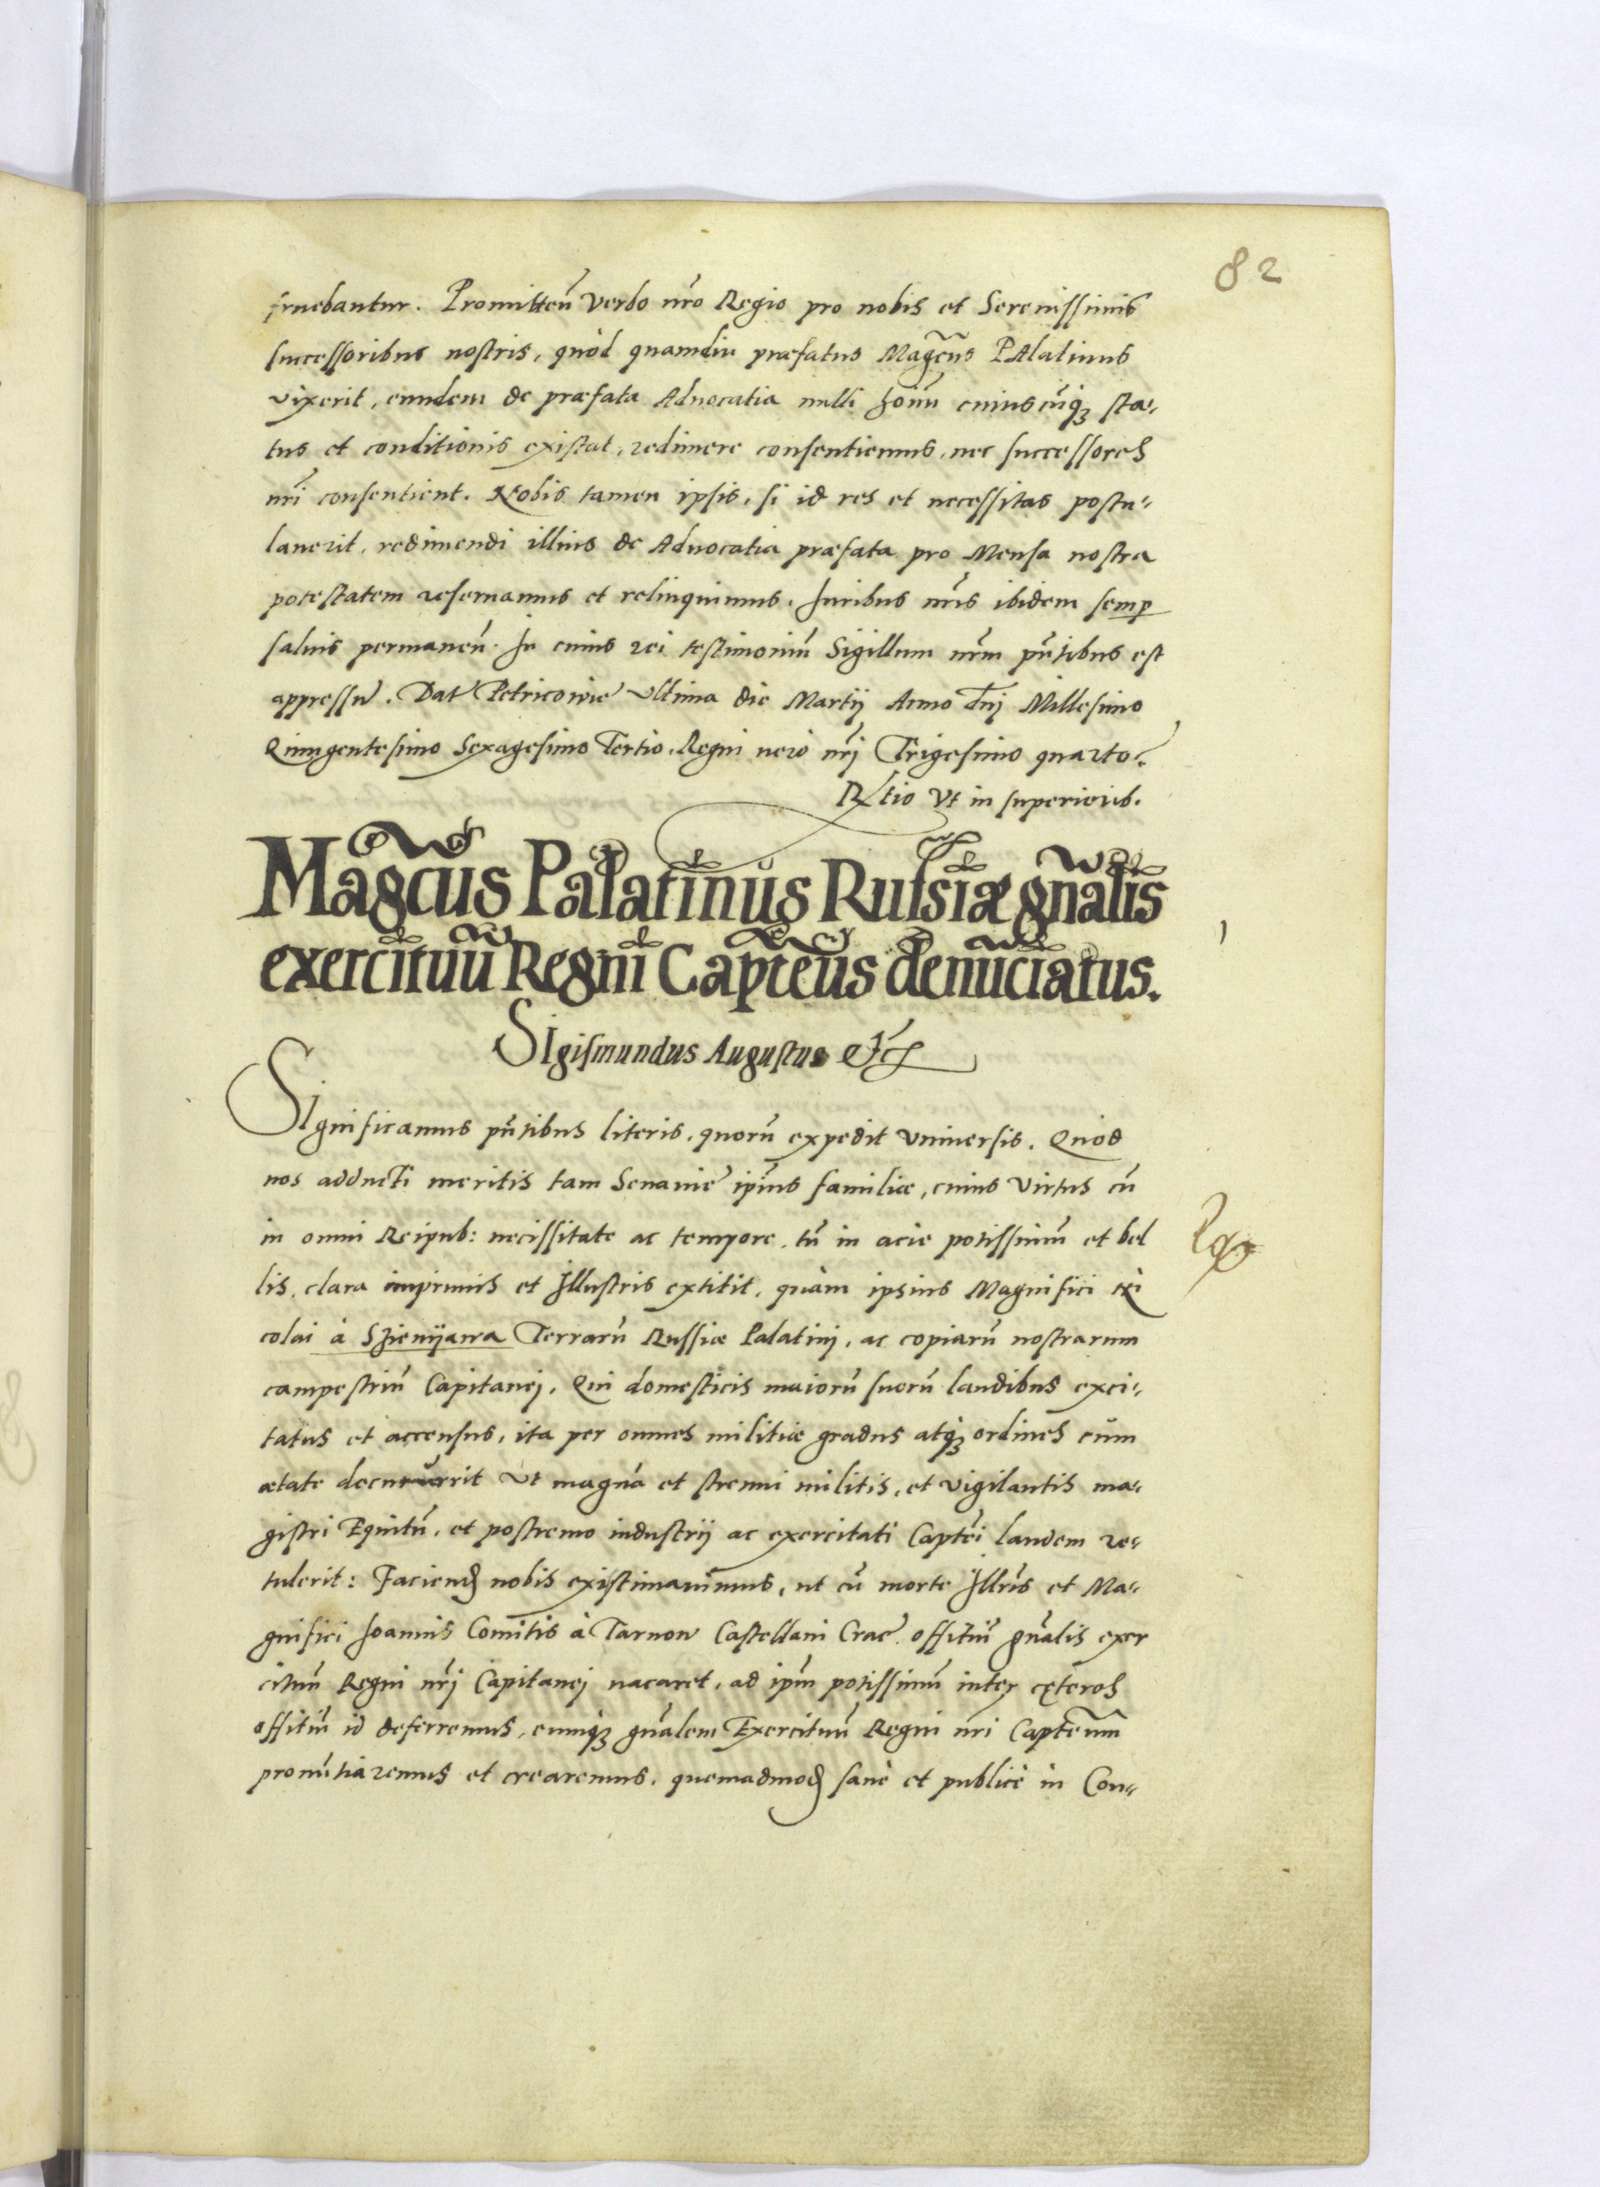 82
fruebantur. Promitteñ Verbo nr̃o Regio pro nobis et Serenissimis
successoribus nostris, quòd quamdiu præfatus Magc̃us PAlatinus
vixerit, eundem de præfata Aduocatia nulli hoĩm cuiuscũqꝫ sta,,
tus et conditionis existat, redimere consentiemus, nec successores
nr̃i consentient. Nobis tamen ipsis, si id res et necessitas postu,,
lauerit, redimendi illius de Aduocatia præfata pro Mensa nostra
potestatem reseruamus et relinquimus. Iuribus nr̃is ibidem semp
saluis permaneñ. In cuius rei testimoniũ Sigillum nr̃m pñtibus est
appressũ. Dat̃ Petricouiẽ Vltima die Martij Anno Dñi Millesimo
Quingentesimo Sexagesimo Tertio, Regni uero nr̃i Trigesimo quarto.
Rl̃tio Vt in superiorib.
Magc̃us Palatinus Russiæ gñalis
exercituũ Regni Capteũs denũciatus.
Sigismundus Augustus Etc̃
Significamus pñtibus literis, quorũ expedit Vniuersis. Quod
nos adducti meritis tam Senauiẽ ip̃ius familiæ, cuius Virtus cũ
in omni Reipub: necissitate ac tempore, tũ in acie potissimũ et bel
lis, clara imprimis et Illustris extitit, quàm ipsius Magnifici Ni
colai à Szienijawa Terrarũ Russiæ Palatini, ac copiarũ nostrarum
campestriũ Capitanej, Qui domesticis maiorũ suorũ laudibus exci,,
tatus et accensus, ita per omnes militiæ gradus atqꝫ ordines cum
ætate decucurrit Vt magnã et strenui militis, et vigilantis ma,,
gistri Equitũ, et postremo industrij ac exercitati Capteĩ laudem re,,
tulerit: Faciend nobis existimauimus, ut cũ morte Illr̃is et Ma,,
gnifici Ioannis Comitis à Tarnow Castellani Crac̃ offitiũ gñalis exer
cituũ Regni nr̃i Capitanej uacaret, ad ip̃m potissimũ inter cęteros
offitiũ id deferremus, eumqꝫ gñalem Exercituũ Regni nr̃i Capteũm
pronũtiaremus et crearemus, quemadmod sanè et publicè in Con,,